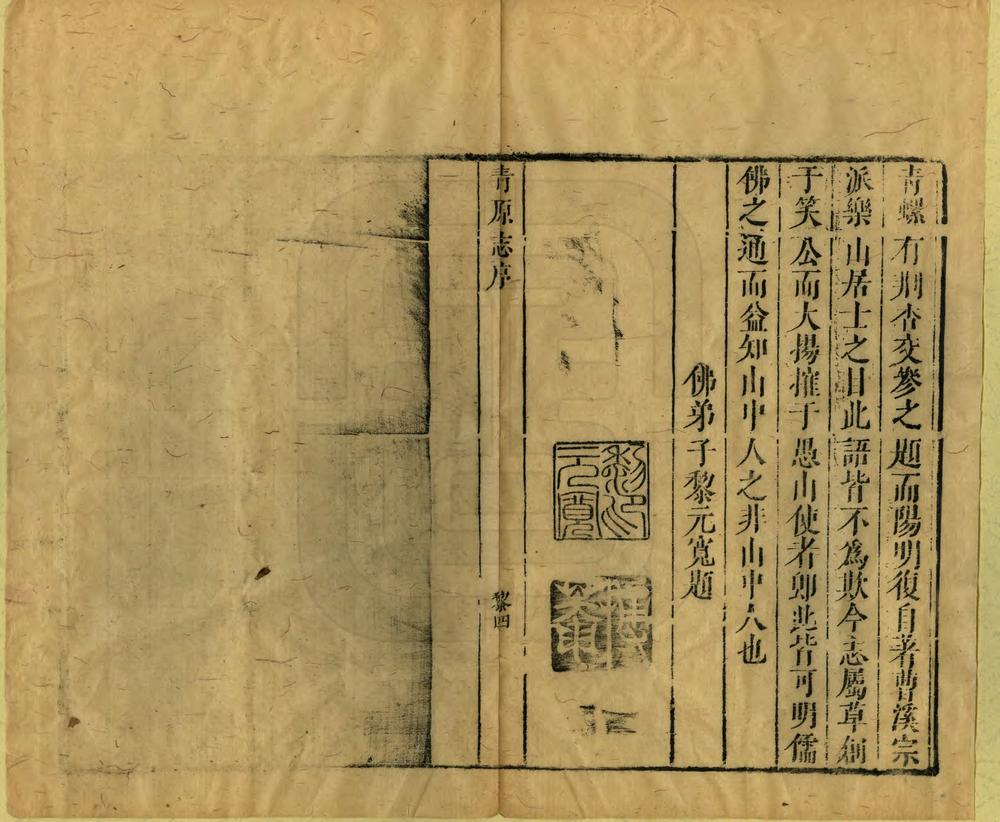 青螺有荆杏交參之題而陽明復自著曹溪宗
派樂山居士之目此語皆不為欺今志屬草創
于笑公而大揚搉于愚山使者卽此皆可明儒
佛之通而益知山中人之非山中人也
佛弟子黎元寬題
黎印元寬
青原志序
黎四